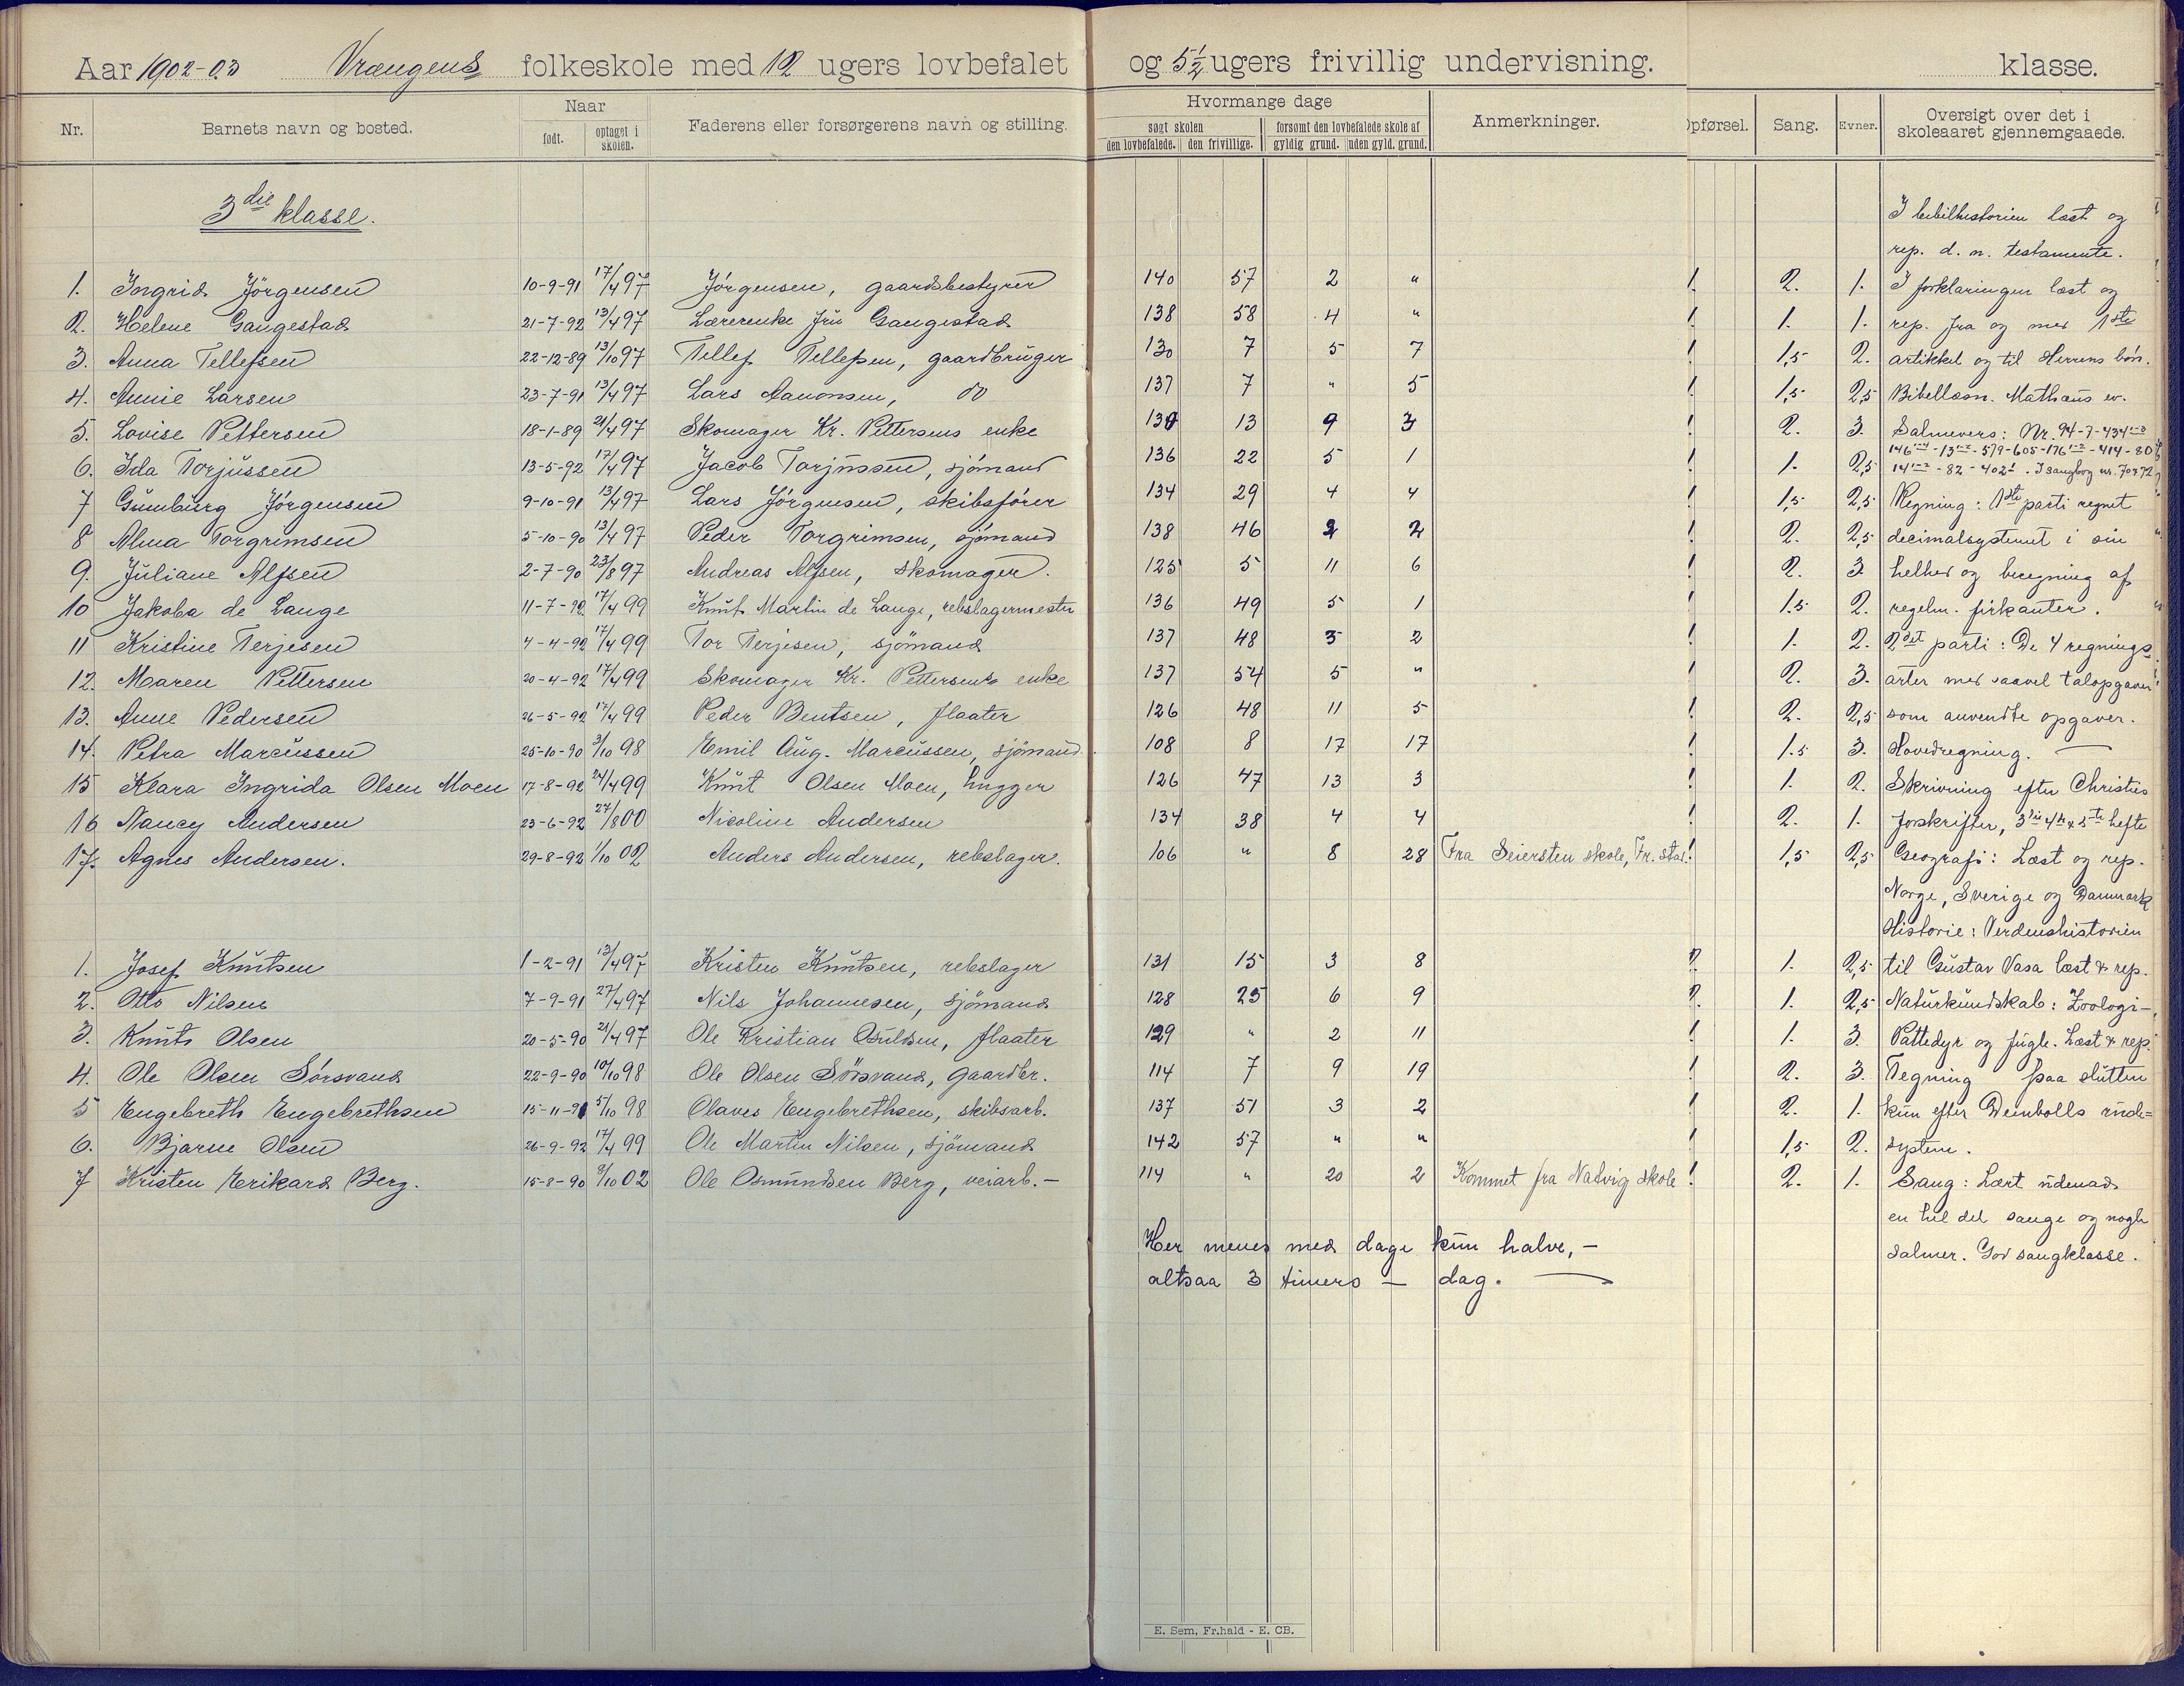 Aar 1902-03 Vrængens folkeskole med 12 ugers lovbefalet og 5½ ugers frivillig undervisning. klasse.
Nr. Barnets navn og bosted. Naar født. optaget i skolen. Faderens eller forsørgerens navn og stilling. Hvormange dage søgt skolen den lovbefalede. den frivillige. forsømt den lovbefalede skole af gyldig grund. uden gyld. grund. Anmerkninger. Opførsel. Sang. Evner. Oversigt over det i skoleaaret gjennemgaaede.
3die klasse.
1. Ingrid Jörgensen 10-9-91 17/4 97 Jörgensen, gaardsbestyrer 140 57 2 " 2. 1.
2. Helene Gangestad 21-7-92 13/4 97 Lærerenke fru Gangestad 138 58 4 " 1. 1.
3. Anna Tellefsen 22-12-89 13/10 97 Tellef Tellefsen, gaardbruger 130 7 5 7 1,5 2.
4. Annie Larsen 23-7-91 13/4 97 Lars Aanonsen, do 137 7 " 5 1,5 2,5
5. Lovise Pettersen 18-1-89 21/4 97 Skomager Kr. Pettersens enke 130 13 9 3 2. 3.
6. Ida Torjussen 13-5-92 17/4 97 Jacob Torjussen, sjömand 136 22 5 1 1. 2,5
7 Gunnburg Jörgensen 9-10-91 13/4 97 Lars Jörgensen, skibsförer 134 29 4 4 1,5 2,5
8 Alma Torgrimsen 5-10-90 13/4 97 Peder Torgrimsen, sjömand 138 46 2 2 2. 2,5
9. Juliane Alfsen 2-7-90 23/8 97 Andreas Alfsen, skomager. 125 5 11 6 2. 3
10 Jakoba de Lange 11-7-92 17/4 99 Knut Martin de Lange, rebslagermester 136 49 5 1 1.5 2.
11 Kristine Terjesen 4-4-92 17/4 99 Tor Terjesen, sjömand 137 48 3 2 1. 2.
12. Maren Pettersen 20-4-92 17/4 99 Skomager Kr. Pettersens enke 137 54 5 " 2. 3.
13. Anne Pedersen 26-5-92 17/4 99 Peder Bentsen, flaater 126 48 11 5 2. 2,5
14. Petra Marcussen 25-10-90 3/10 98 Emil Aug. Marcussen, sjömand 108 8 17 17 1.5 3.
15 Klara Ingrida Olsen Moen 17-8-92 24/4 99 Knut Olsen Moen, hugger 126 47 13 3 1. 2.
16 Nancy Andersen 23-6-92 27/8 00 Nicoline Andersen 134 38 4 4 2. 1.
17. Agnes Andersen. 29-8-92 1/10 02 Anders Andersen, rebslager. 106 " 8 28 Fra Seiersten skole, Fr.stad. 1,5 2,5
1. Josef Knutsen 1-2-91 13/4 97 Kristen Knutsen, rebslager 131 15 3 8 1. 2,5
2. Otto Nilsen 7-9-91 27/4 97 Nils Johannesen, sjömand 128 25 6 9 1. 2,5
3. Knut Olsen 20-5-90 21/4 97 Ole Kristian Osuldsen, flaater 129 " 2 11 1. 3.
4. Ole Olsen Sörsvand 22-9-90 10/10 98 Ole Olsen Sörsvand, gaardbr. 114 7 9 19 2. 3.
5 Engebreth Engebrethsen 15-11-91 5/10 98 Olaves Engebrethsen, skibsarb. 137 51 3 2 2. 1.
6. Bjarne Olsen 26-9-92 17/4 99 Ole Martin Nilsen, sjömand 142 57 " " 1,5 2.
7 Kristen Erikard Berg. 15-8-90 8/10 02 Ole Osmundsen Berg, veiarb. - 114 " 20 2 Kommet fra Natvig skole 2. 1.
Her menes med dage kun halve, -
altsaa 3 timers - dag.
I bibelhistorien læst og
rep. d. n. testamente.
I forklaringen læst og
rep. fra og med 1ste
artikkel og til Herrens bön.
Bibellæsn. Mathæus ev.
Salmevers: Nr. 94-7-434
Regning: 1ste parti regnet
decimalsystemet i sin
helhed og beregning af
regelm. firkanter.
2det parti: De 4 regnings-
arter med saavel talopgaver
som anvendte opgaver.
Hovedregning.
Skrivning efter Christies
forskrifter, 3die 4de & 5te hefte
Geografi: Læst og rep.
Norge, Sverige og Danmark
Historie: Verdenshistorien
til Gustav Vasa læst & rep.
Naturkundskab: Zoologi -
Pattedyr og fugle. Læst & rep.
Tegning paa slutten
kun efter Deinbolls rude-
system.
Sang: Lært udenad
en hel del sange og nogle
salmer. God sangklasse.
E. Sem, Fr.hald - E. CB.